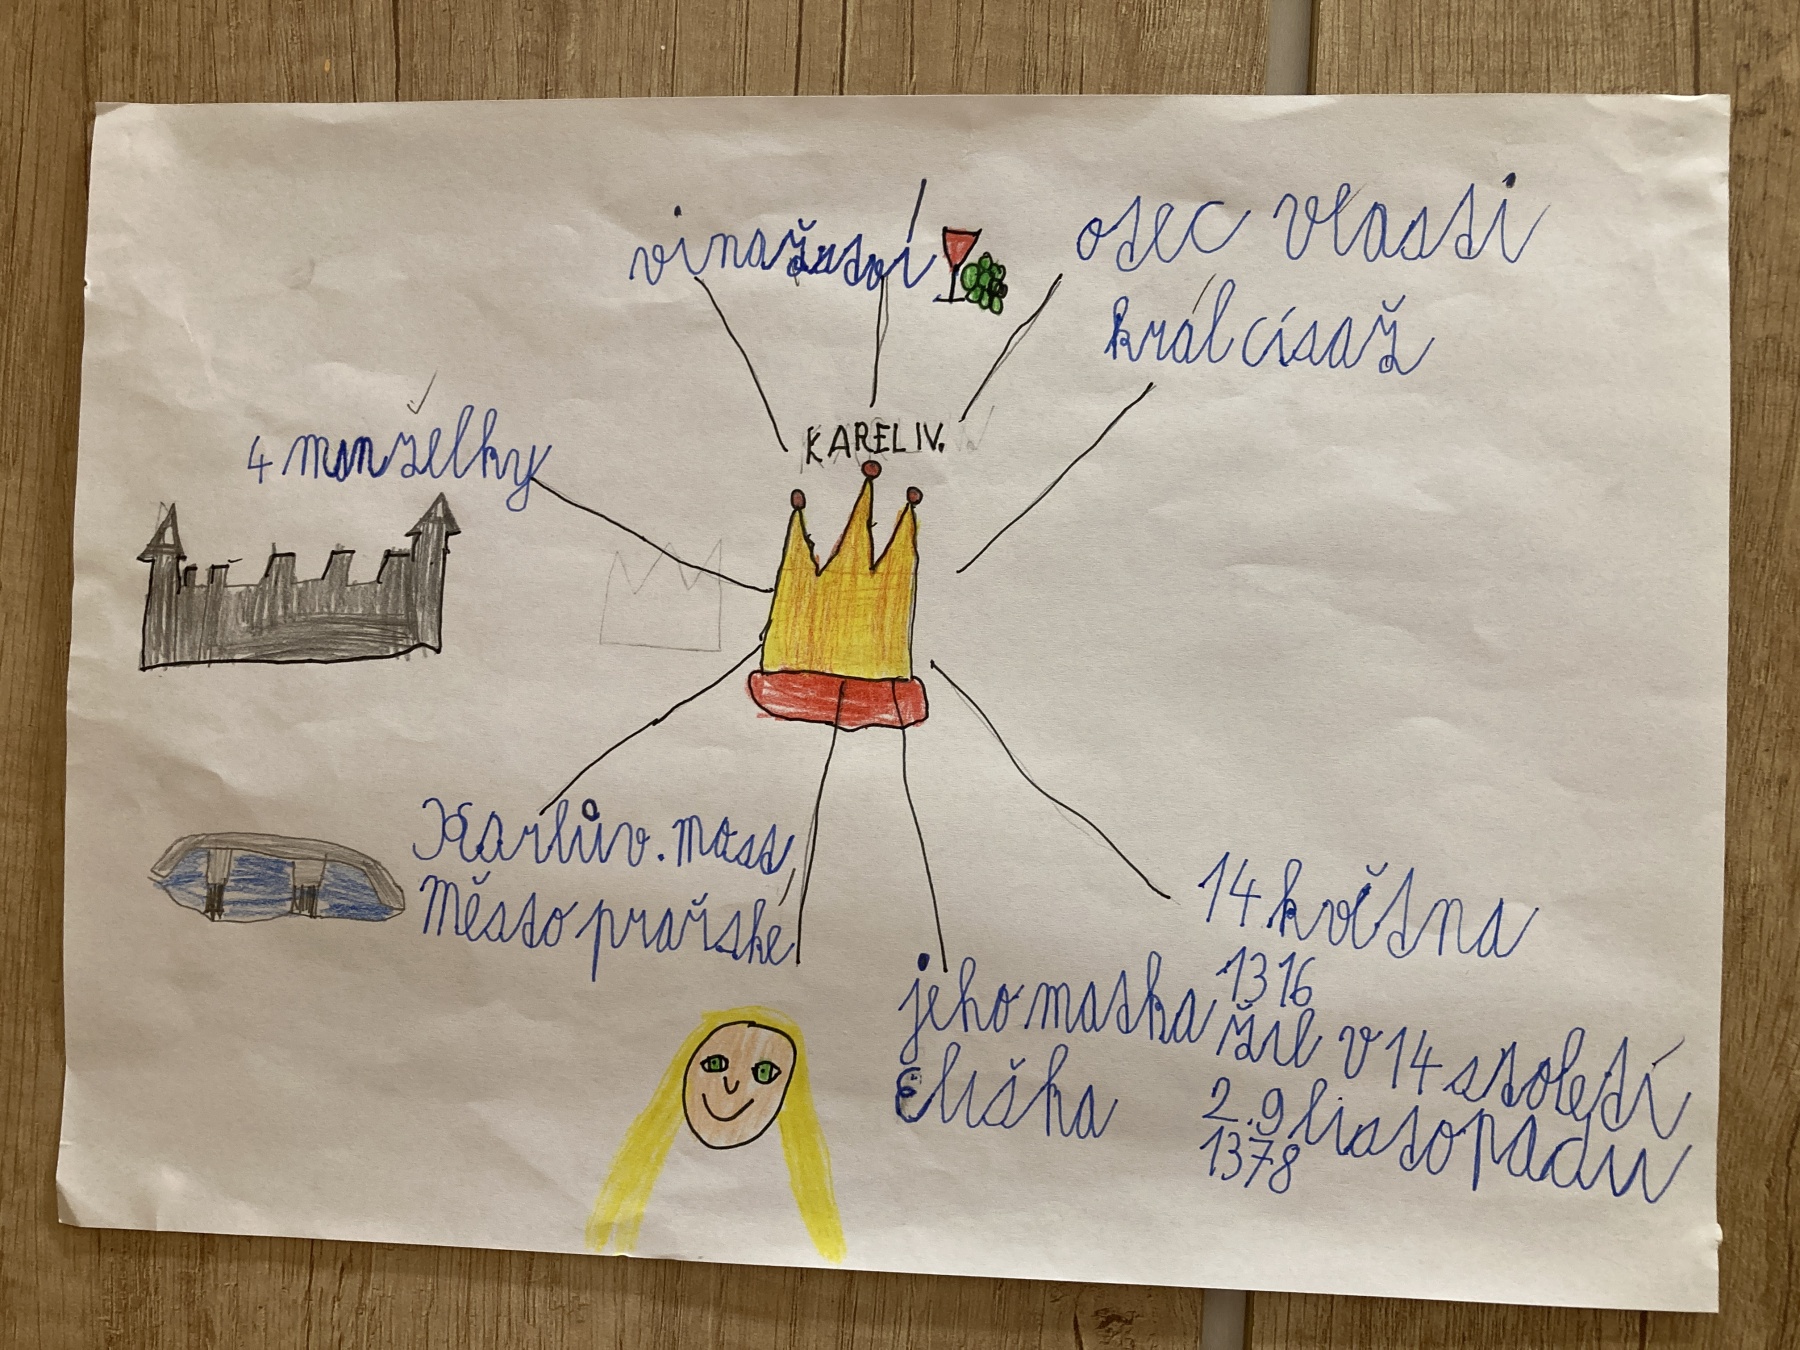 vinařství
otec vlasti
král císař
4 manželky
KAREL IV.
Karlův. most,
Město pražské
jeho matka
Eliška
14 května
1316
žil v 14 století
2.9 listopadu
1378